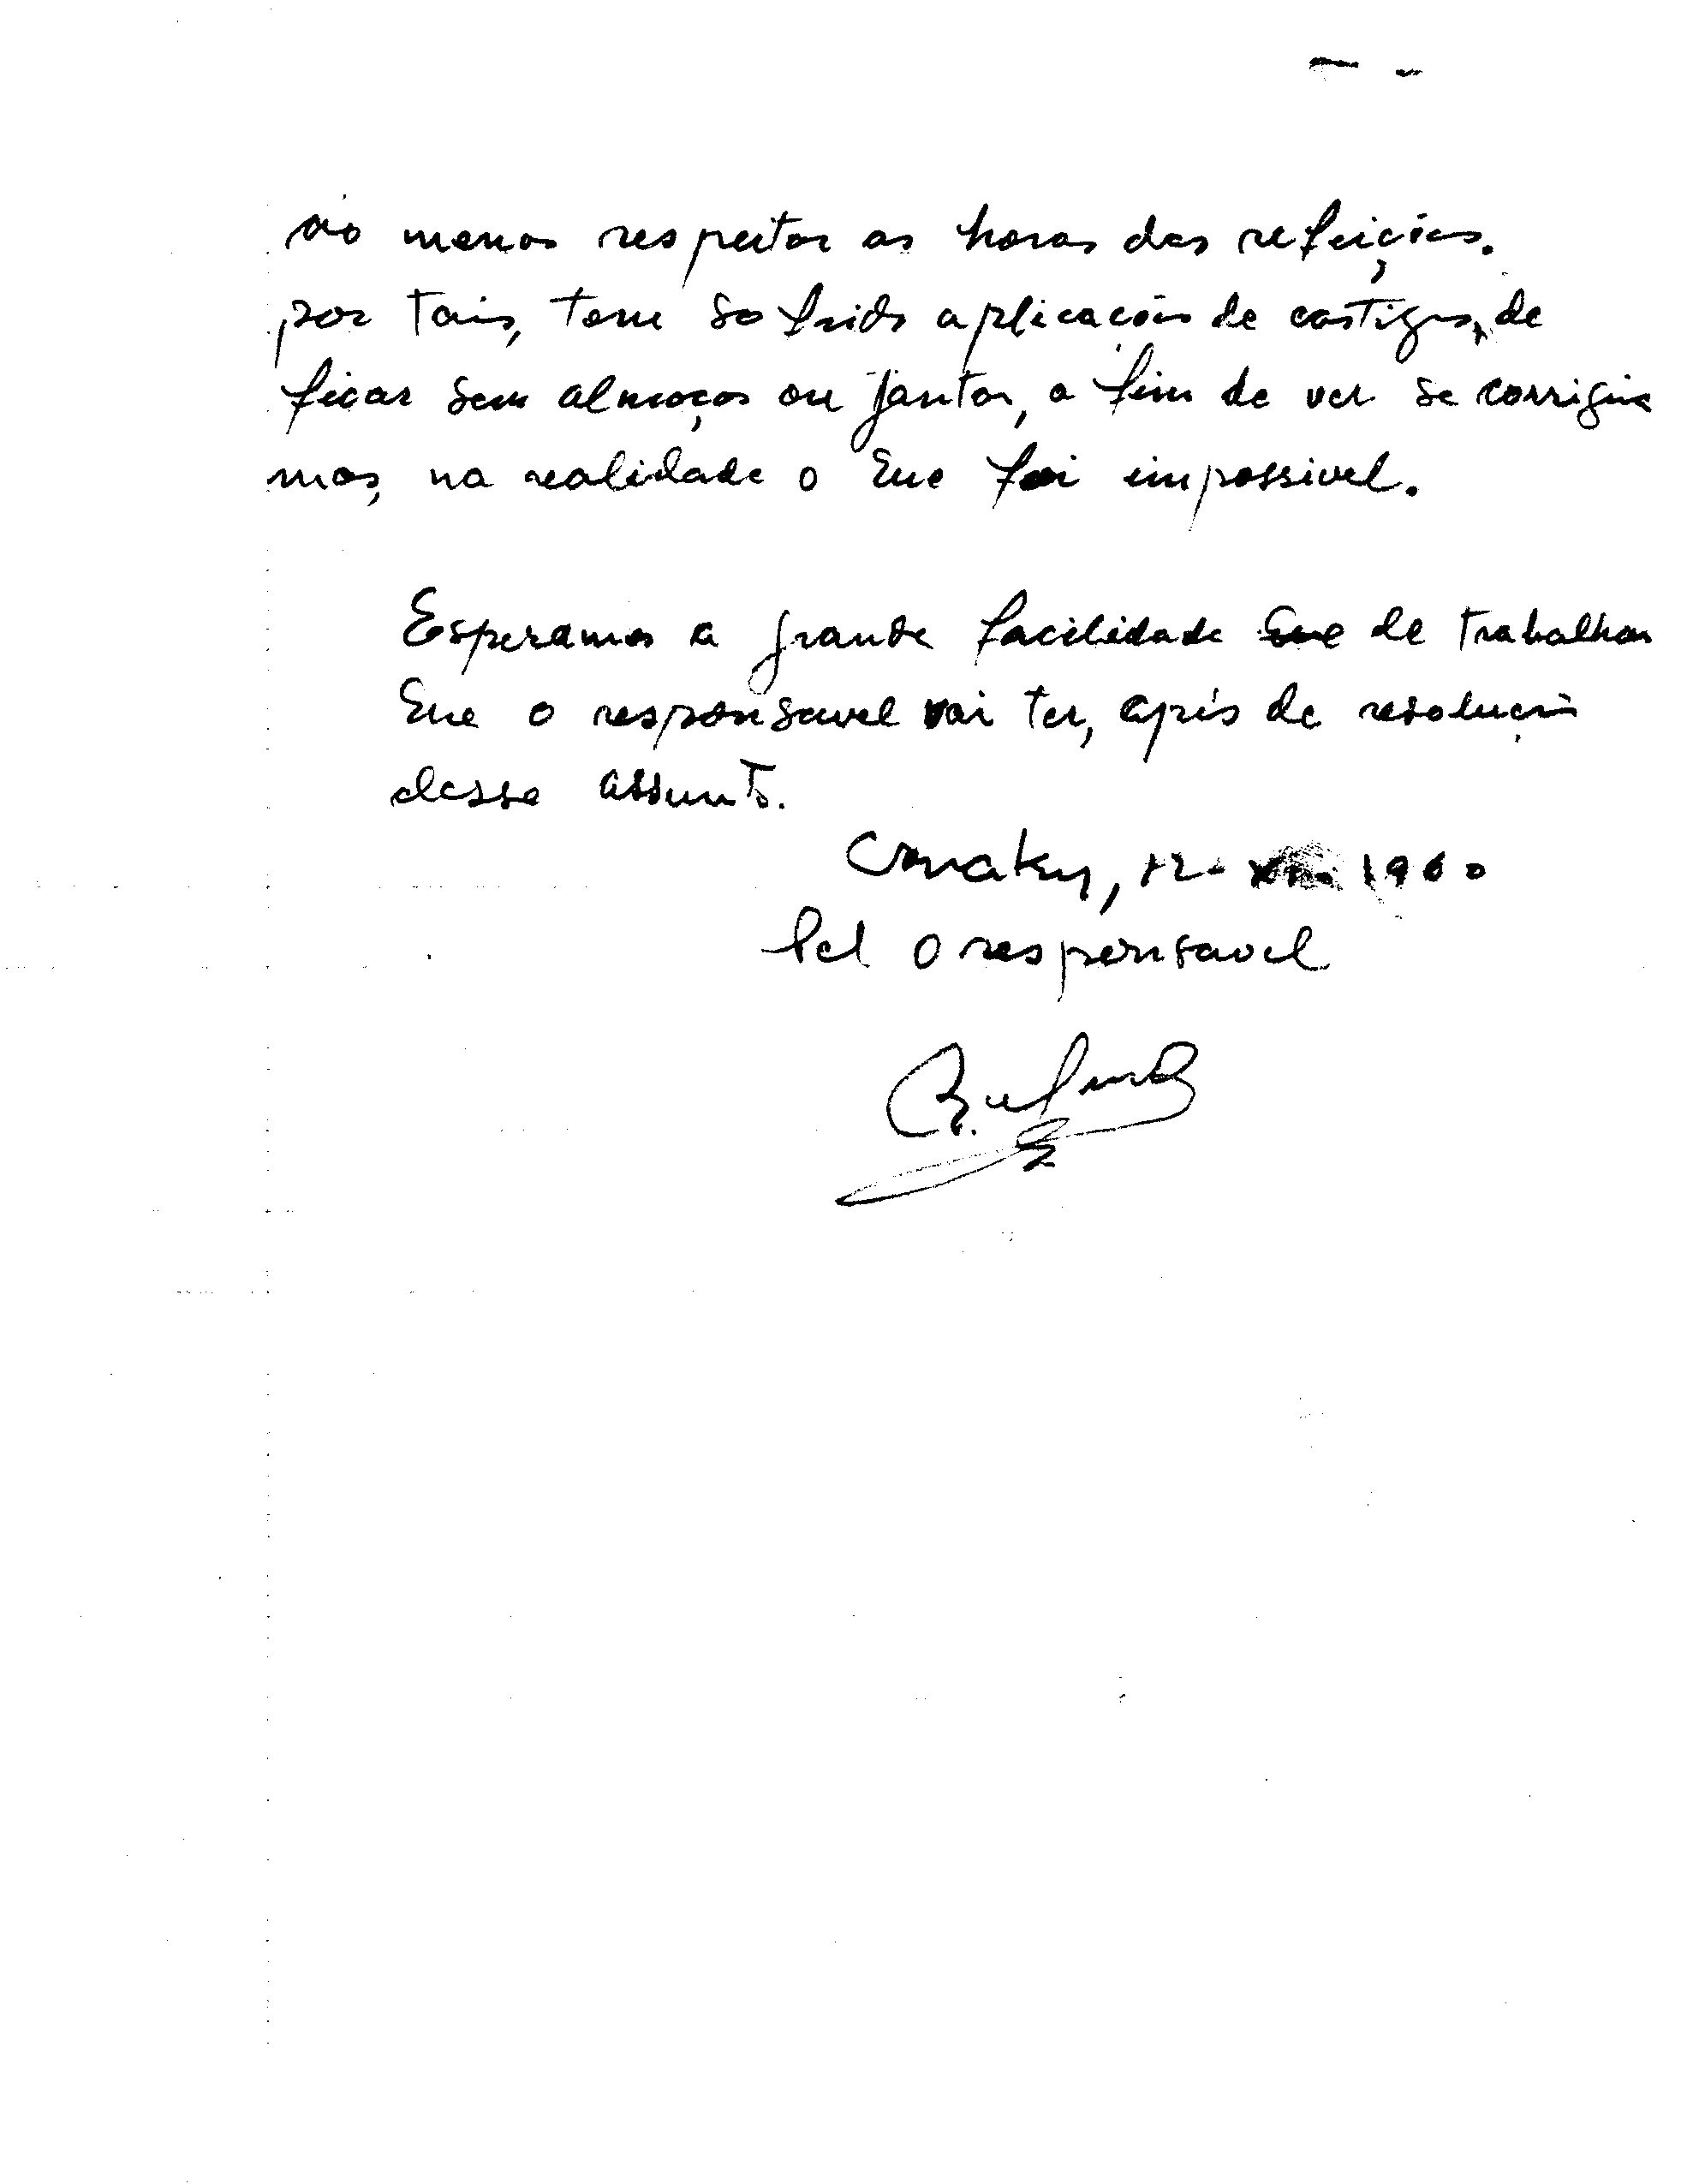 ao menos respeitar as horas das refeições.
por tais, tem sofrido aplicações de castigos, de
ficar sem almoços ou jantar, a fim de ver se corrigia
mas, na realidade o que foi impossivel.
Esperamos a grande facilidade que de trabalhar
que o responsavel vai ter, após de resolução
desse assunto.
Conakry, 12- 1960
Pel o responsavel